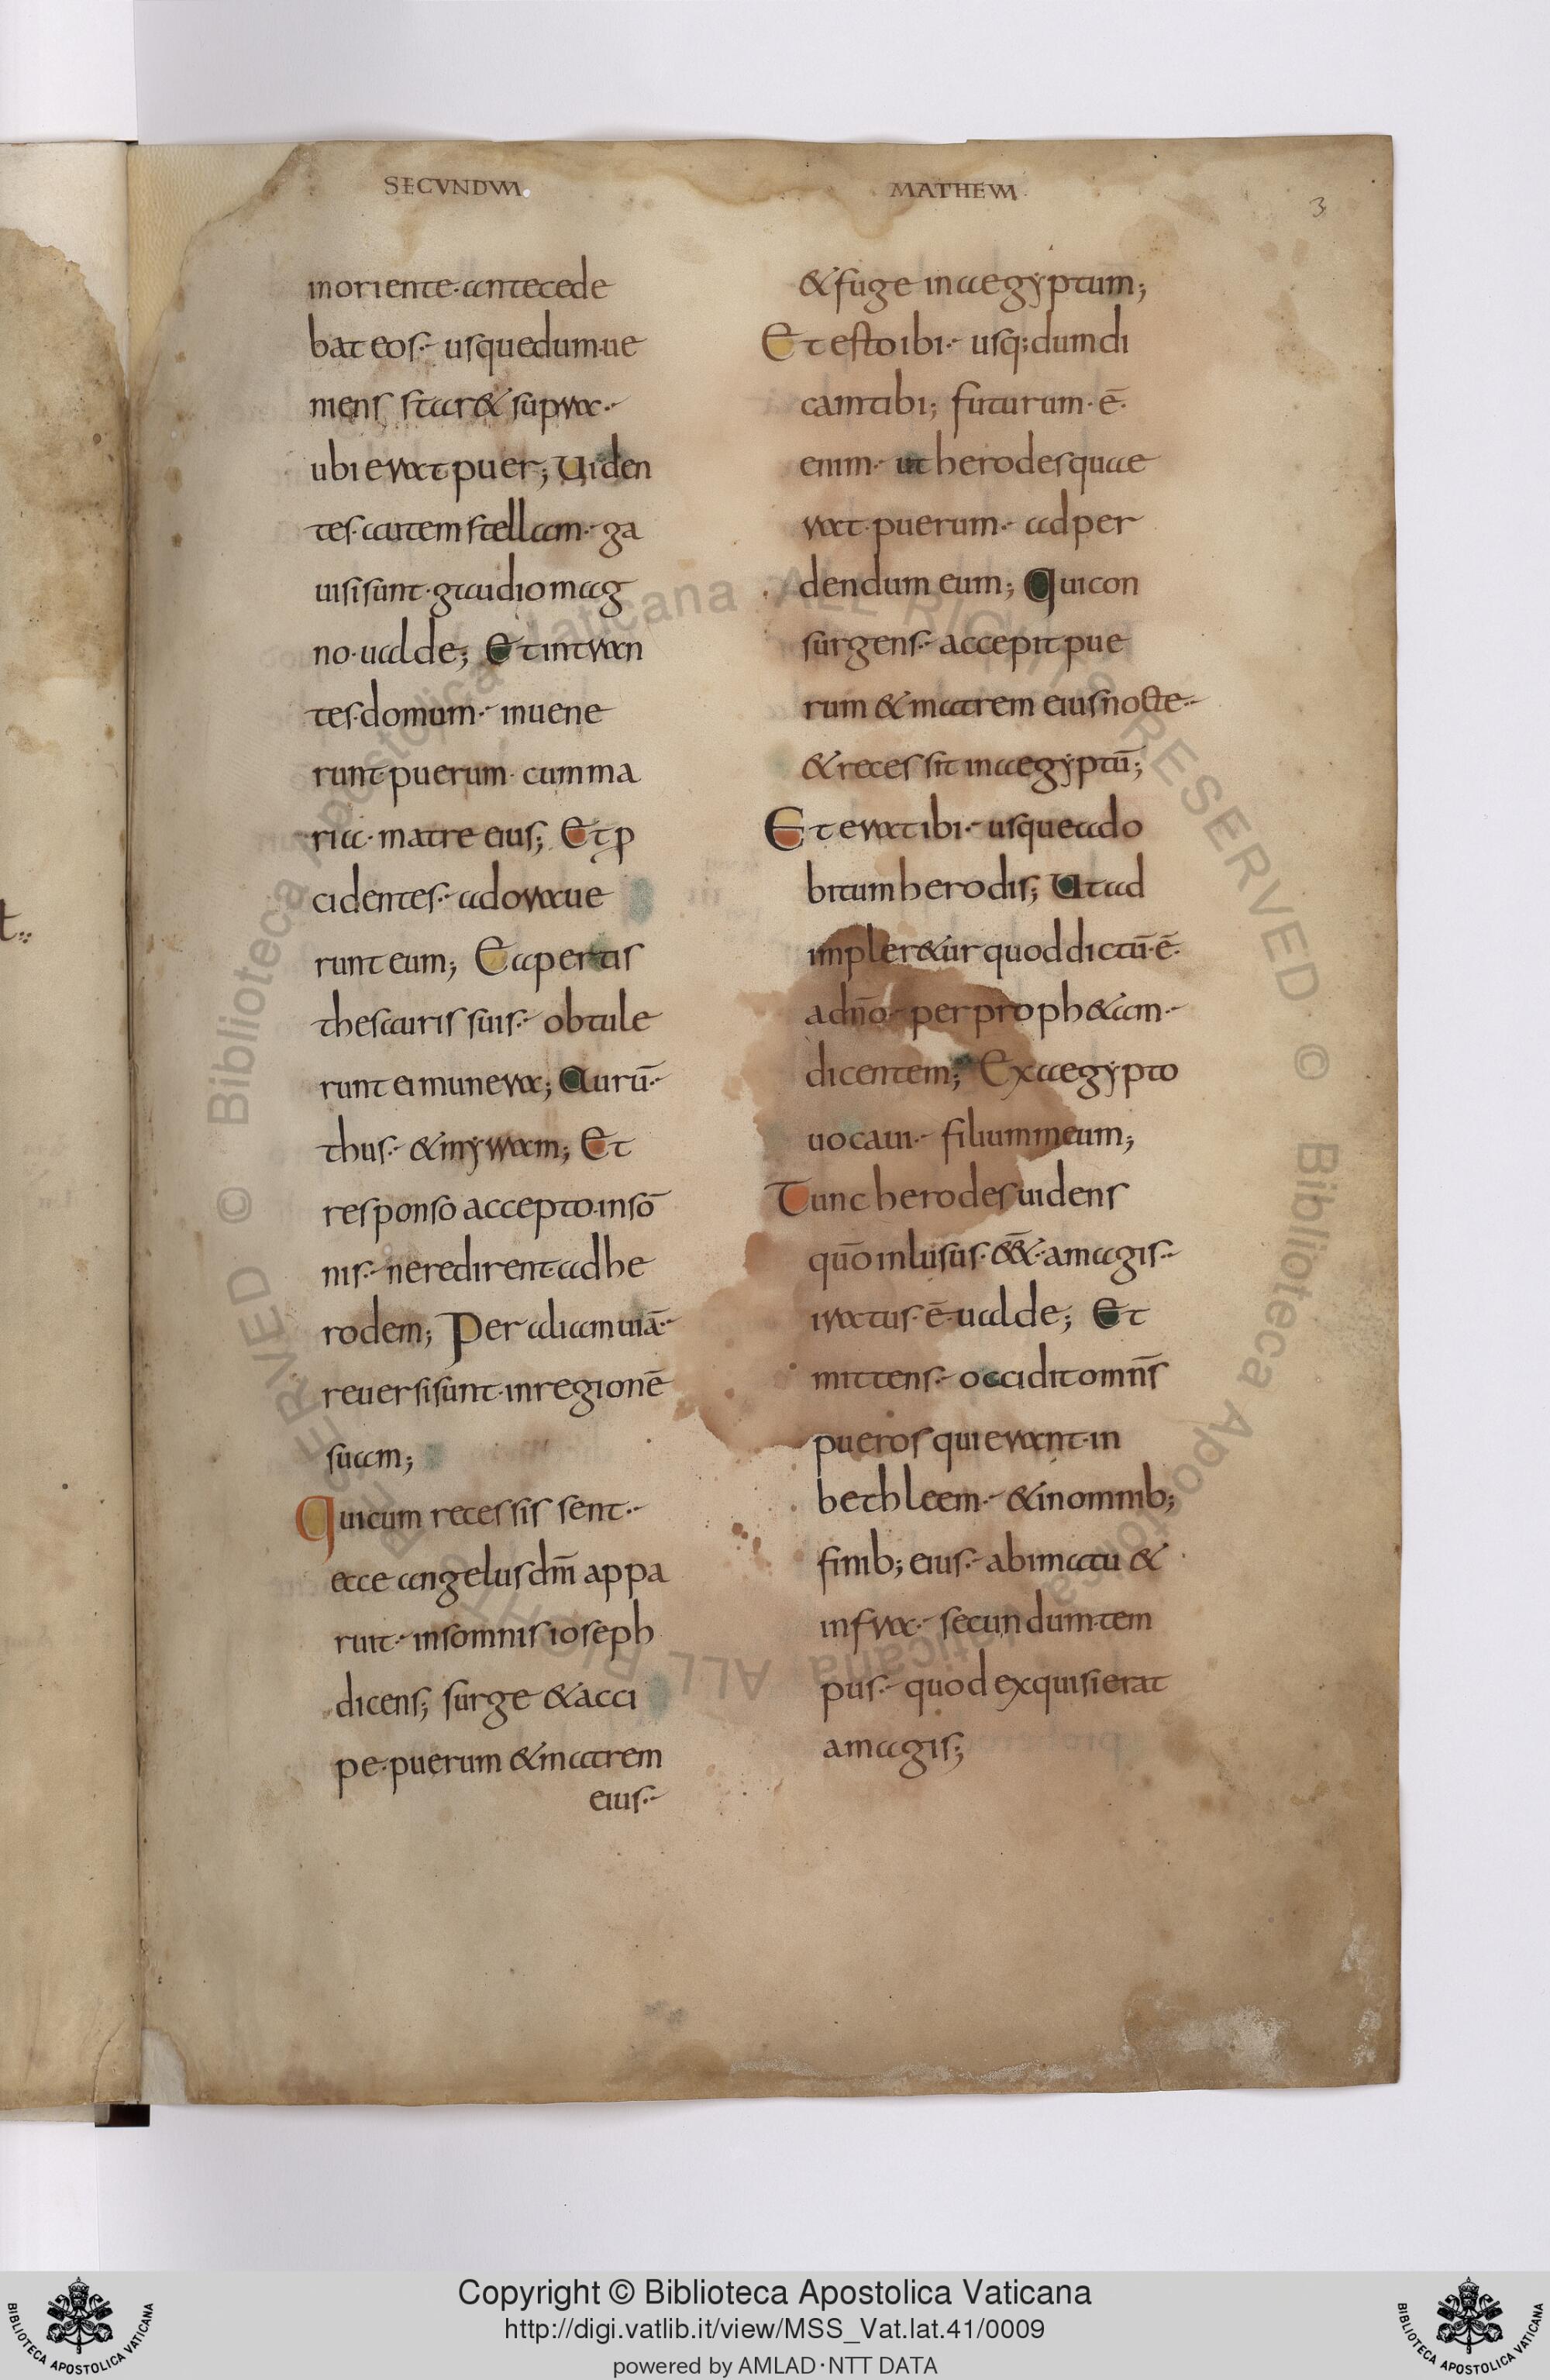 SECUNDUM
MATHEUM
3
inoriente· antecede
bat eos·- usquedum·ue
niens staret sup̱ra·-
ubi erat puer; Uiden
tes·autem stellam·- ga
uisisunt·gaudiomag
no·ualde; Et intran
tes·domum·- inuene
runt puerum· cumma
ria·matre eius; Et ꝓ
cidentes·- adoraue
runt eum; Et apertis
thesauris suis·- obtule
runt ei munera; Aurū·-
thus·- &myrram; Et
responso accepto·insō
nis·- neredirent·adhe
rodem; Per aliam uiā·-
reuersisunt·inregionē
suam;
Quicum recessissent·-
ecce angelus dn̄i appa
ruit·- insomnis ioseph
dicens; surge &acci
pe·puerum &matrem
eius·-
&fuge inaegyptum;
Et esto ibi·- usq;dumdi
camtibi; futurum·ē·
enim·- ut herodesquae
rat·puerum·- adper
dendum eum; Quicon
surgens·- accepit pue
rum &matrem eiusnocte·-
&recessit inaegyptū;
Et erat ibi·- usquead o
bitum herodis; Ut ad
impleretur quoddictū·ē·
adn̄o·- per proph&am·-
dicentem; Exaegypto
uocaui·- filiummeum;
Tunc herodes uidens
qūo inlusus·ēēt·amagis·-
iratus·ē·ualde; Et
mittens·- occiditomn̄s
pueros quierant·in
bethleem·- &inomnib;
finib; eius·- abimatu &
infra·- secundum·tem
pus·- quod exquisierat
amagis;
Copyright © Biblioteca Apostolica Vaticana
http://digi.vatlib.it/view/MSS_Vat.lat.41/0009
powered by AMLAD·NTT DATA